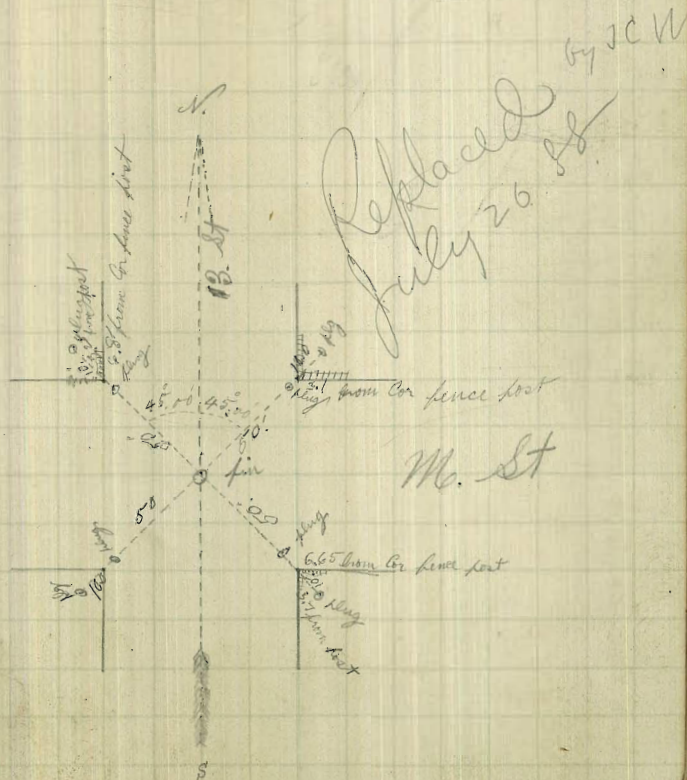 by JCW
Replaced
July 26 88
N.
13. St
6.8 from Cor fence post
plug
plug
plug from Cor fence post
45°00' 45°00'
50
pin
M. St
50
50
plug
plug
6.65 from Cor fence post
plug
from post
S